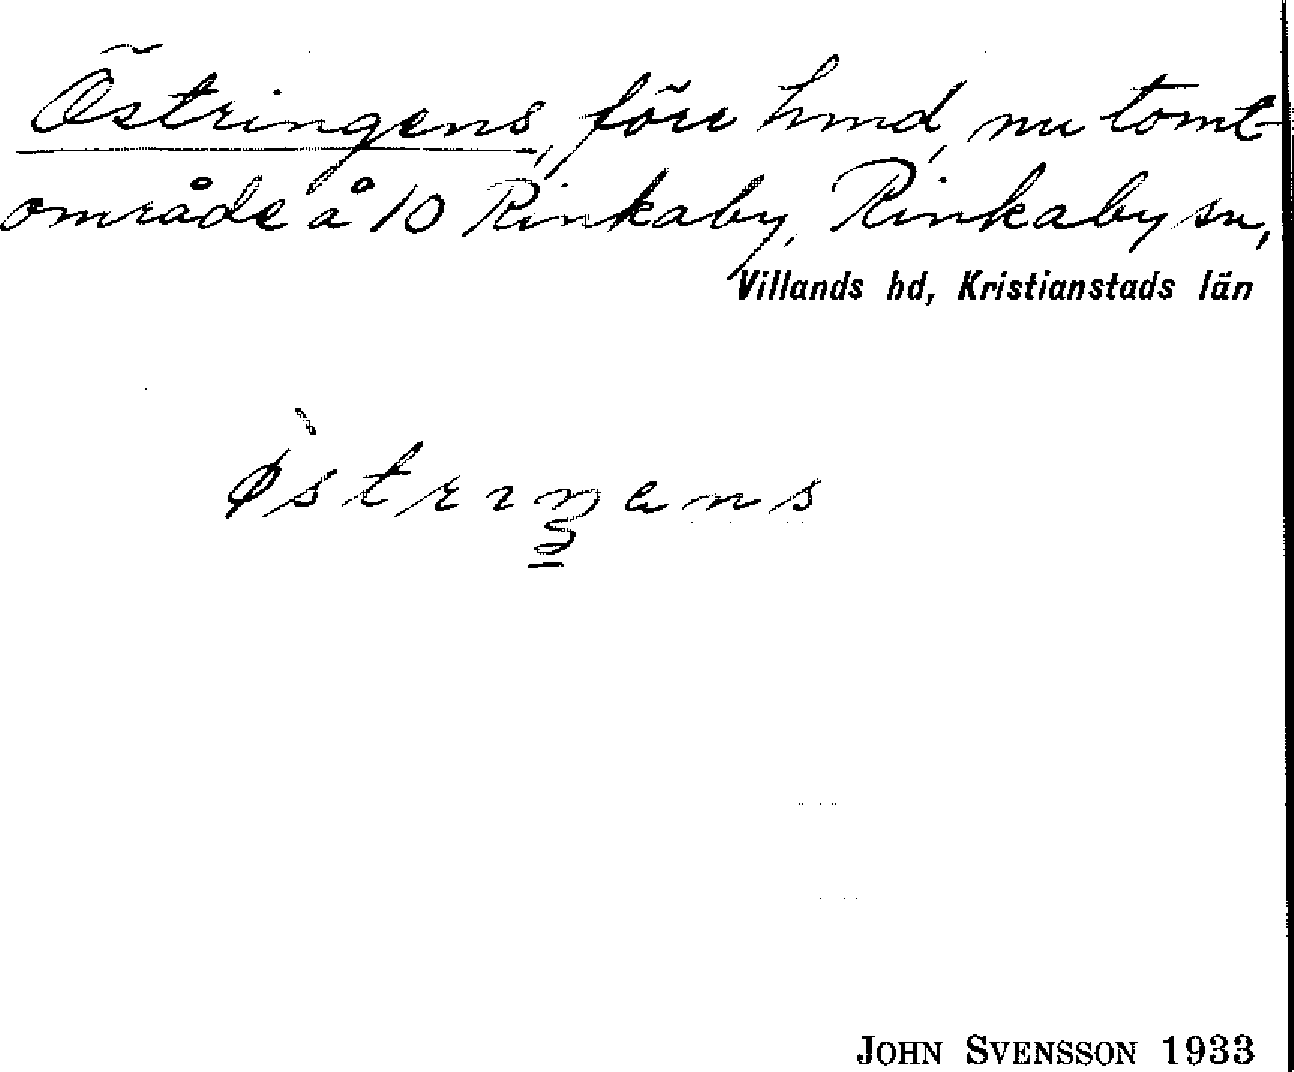 Östringens, före hmd, nu tomt-
område å 10 Rinkaby, Rinkaby sn,
Villands hd, Kristianstads län
ø̀strıŋans
JOHN SVENSSON 1933